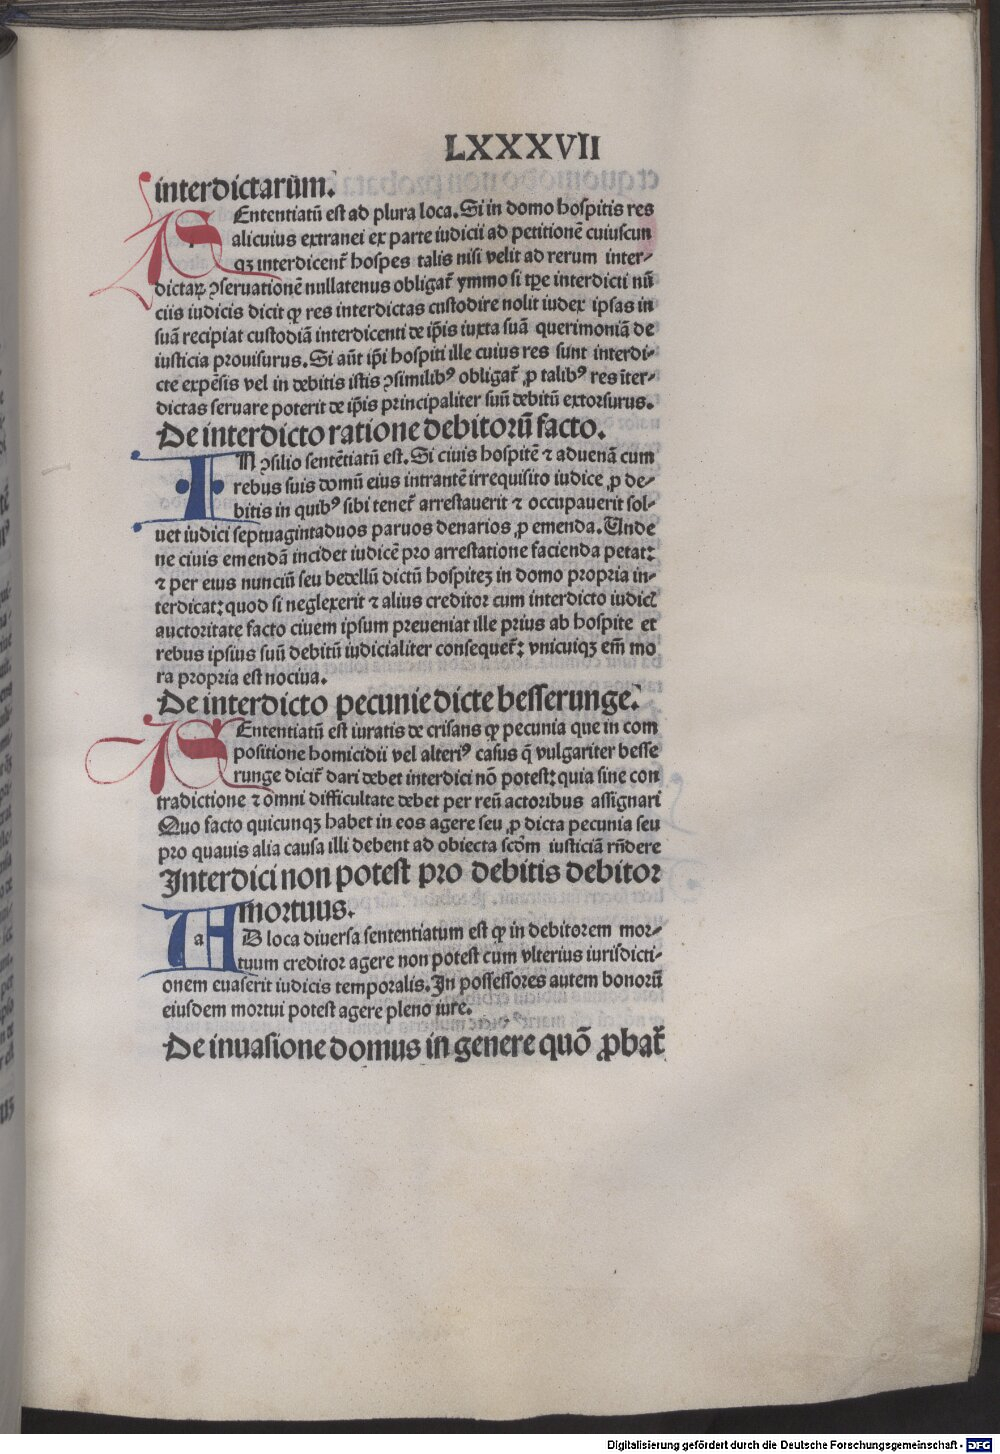 LXXXVII
interdictarum.
SEntentiatū est ad plura loca. Si in domo hospitis res
alicuius extranei ex parte iudicii ad petitionē cuiuscun
qꝫ interdicent̄ hospes talis nisi velit ad rerum inter-
dictaꝝ ꝯseruationē nullatenus obligat̄ ymmo si tp̄e interdicti nū
ciis iudicis dicit ꝙ res interdictas custodire nolit iudex ipsas in
suā recipiat custodiā interdicenti de ip̄is iuxta suā querimoniā de
iusticia prouisurus. Si aūt ip̄i hospiti ille cuius res sunt interdi-
cte expēsis vel in debitis istis ꝯsimilibꝰ obligat̄ ꝓ talibꝰ res īter-
dictas seruare poterit de ip̄is principaliter suū debitū extorsurus.
De interdicto ratione debitorū facto.
IN ꝯsilio sentētiatū est. Si ciuis hospitē ⁊ aduenā cum
rebus suis domū eius intrantē irrequisito iudice ꝓ de-
bitis in quibꝰ sibi tenet̄ arrestauerit ⁊ occupauerit sol-
uet iudici septuagintaduos paruos denarios ꝓ emenda. Unde
ne ciuis emendā incidet iudicē pro arrestatione facienda petat:
⁊ per eius nunciū seu bedellū dictū hospiteꝫ in domo propria in-
terdicat: quod si neglexerit ⁊ alius creditor cum interdicto iudicꝭ
auctoritate facto ciuem ipsum preueniat ille prius ab hospite et
rebus ipsius suū debitū iudicialiter consequet̄: vnicuiqꝫ em̄ mo
ra propria est nociua.
De interdicto pecunie dicte besserunge.
SEntentiatū est iuratis de crisans ꝙ pecunia que in com
positione homicidii vel alteriꝰ casus q̄ vulgariter besse
runge dicit̄ dari debet interdici nō potest: quia sine con
tradictione ⁊ omni difficultate debet per reū actoribus assignari
Quo facto quicunqꝫ habet in eos agere seu ꝓ dicta pecunia seu
pro quauis alia causa illi debent ad obiecta scd̄m iusticiā rn̄dere
Interdici non potest pro debitis debitor
mortuus.
AD loca diuersa sententiatum est ꝙ in debitorem mor-
tuum creditor agere non potest cum vlterius iurisdicti-
onem euaserit iudicis temporalis. In possessores autem bonorū
eiusdem mortui potest agere pleno iure.
De inuasione domus in genere quō ꝓbat̄
Digitalisierung gefördert durch die Deutsche Forschungsgemeinschaft - DFG